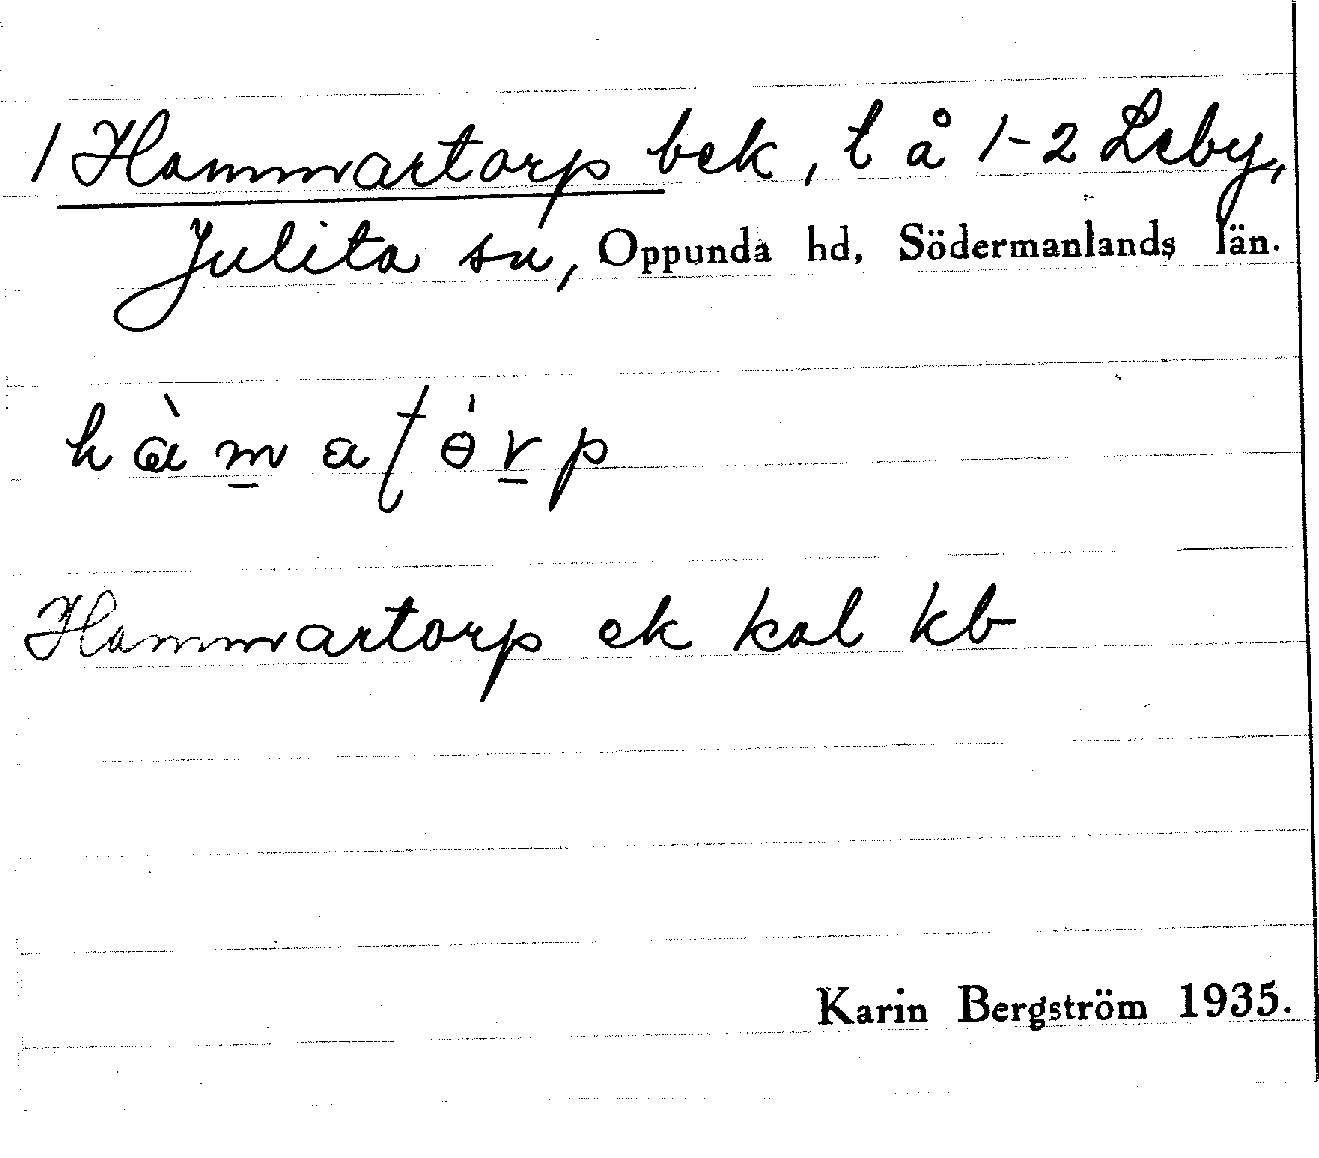 1 Hammartorp bek, l å 1-2 Leby,
Julita sn, Oppunda hd, Södermanlands län.
hàmaʈɵ́rp
Hammartorp ek kol kb
Karin Bergström 1935.